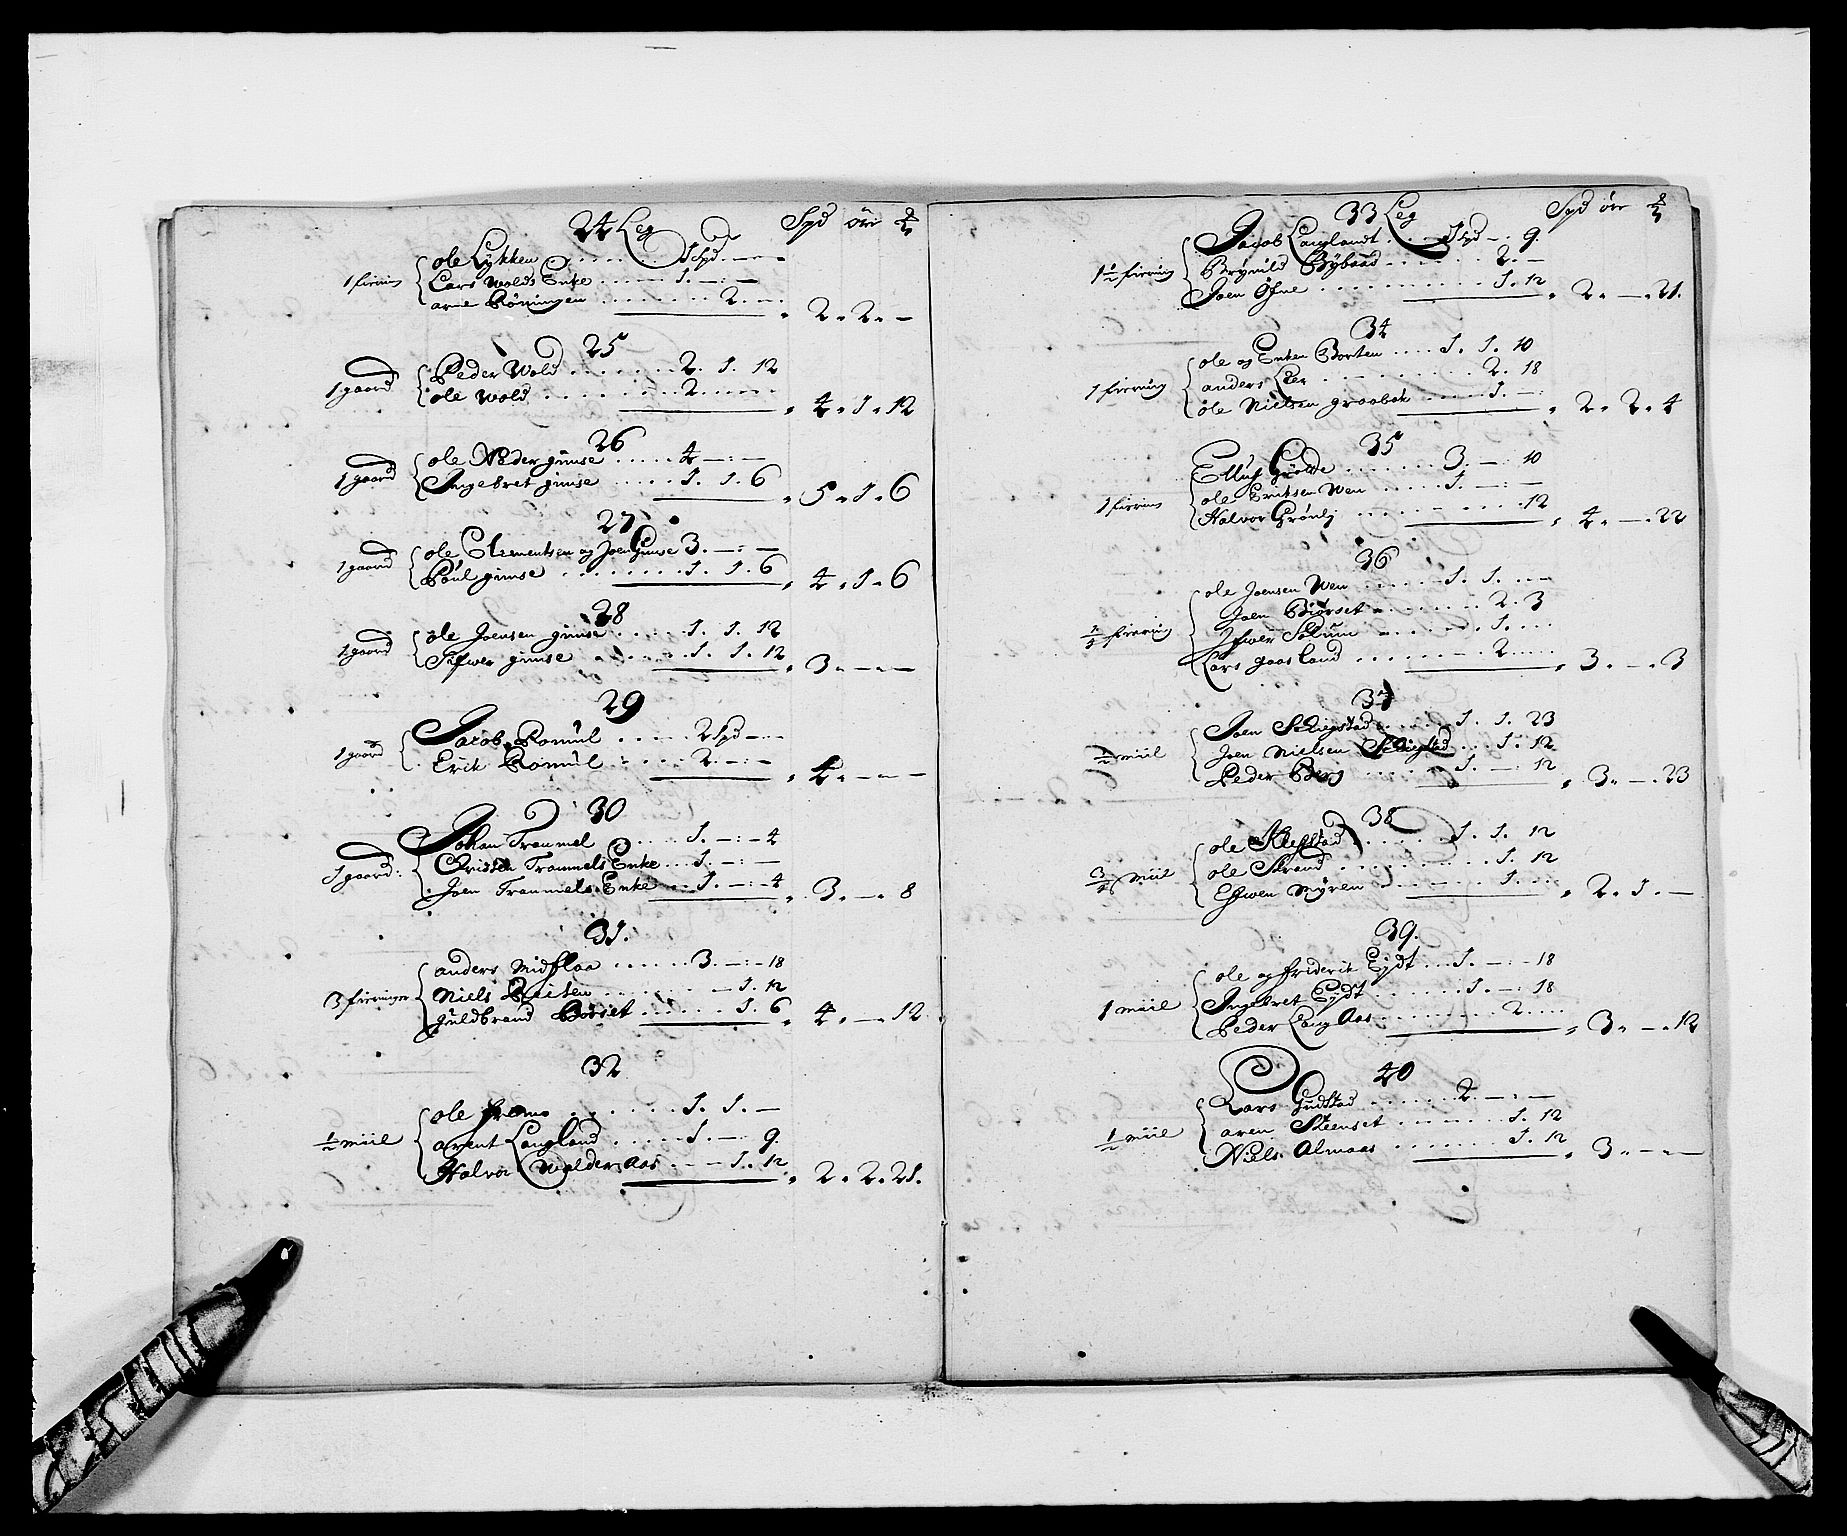 24 Leg Spd öre
ole Lykken ...... 1 Spd. — —
1 fiering Lars Wolds Enke ..... 1. — : —
arne Röningen ........ 2. — . 2. 2. —
25
1 gaard Peder Wold ....... 2. 1. 12
ole Wold ........ 2 ..... . 4. 1. 12
26
ole Nedergimse ..... 4 — : —
1 gaard Ingebret gimse ..... 1. 1. 6 . 5. 1. 6
27
1 gaard ole Clementsen og Joen Gimse 3. — : —
Poul gimse ........ 1. 1. 6 . 4. 1. 6
28
1 gaard ole Joensen gimse ..... 1. 1. 12
Sifwer gimse ...... 1. 1. 12 . 3. — —
29
1 gaard Jacob Romul ..... 2 Spd — : —
Erik Romul ..... 2. — : — . 4. — —
30
Johan Trammel ..... 1. — : — 4
1 gaard: Tramels Enke ... 1. — : —
Joen Trammels Enke ... 1. — : — 4 . 3. — . 8
31.
anders Midflaa ...... 3. — : — 18
3 fieringer Niels Reiten ....... — 1. 12
Guldbrand Börset ...... 1. 6 . 4. — . 12
32
ole fremo ....... 1. 1. —
1/2 miil arent Langland ..... 1. — 9.
Halvor Aas ... — 1. 12 . 2. 2. 21.
33 Leg Spd öre
Jacob Langlandt ... 1 Spd — . 9.
1 1/2 fiering Brynild Bybaad ....... 2. —
Joen Öfne .......... 1. 12 . 2. — . 21.
34
ole og Enken Borten .... 1. 1. 10
1 fiering anders Leer ......... 2. 18
ole Nielsen graabak ..... 1. — : . 2. 2. 4
35
....... 3. — : 10
1 fiering ole Eriksen Wen ...... 1. — : —
Halvor Grönli ........ 12 . 4. — . 22
36
ole Joensen Wen ...... 1. 1. .. —
Joen Biörset ........ 2. 3
fiering Sifwer Solum ....... 1. ...
Lars gaasland ....... — 2 ..... . 3. — . 3
37
Joen ...... 1. 1. 23
1/2 miil Joen Nielsen ... 1. 12
Peder Berg ...... 1. — : 12 . 3. — . 23
38
ole ...... 1. 1. 12
3/4 miil ole Strand ......... 1. 12
Myren ....... 1. ... . 2. 1. —
39.
ole og friderik Eydt ... 1. — : — 18
1 miil Ingebret Eydt ...... 1. — : 18
Peder Langaas ....... 2 .... . 3. — . 12
40
Lars Gudstad ...... 2. — : —
1/2 miil aren Steenset ....... 1. 12
Niels Almaas ....... 1. 12 . 3. — —